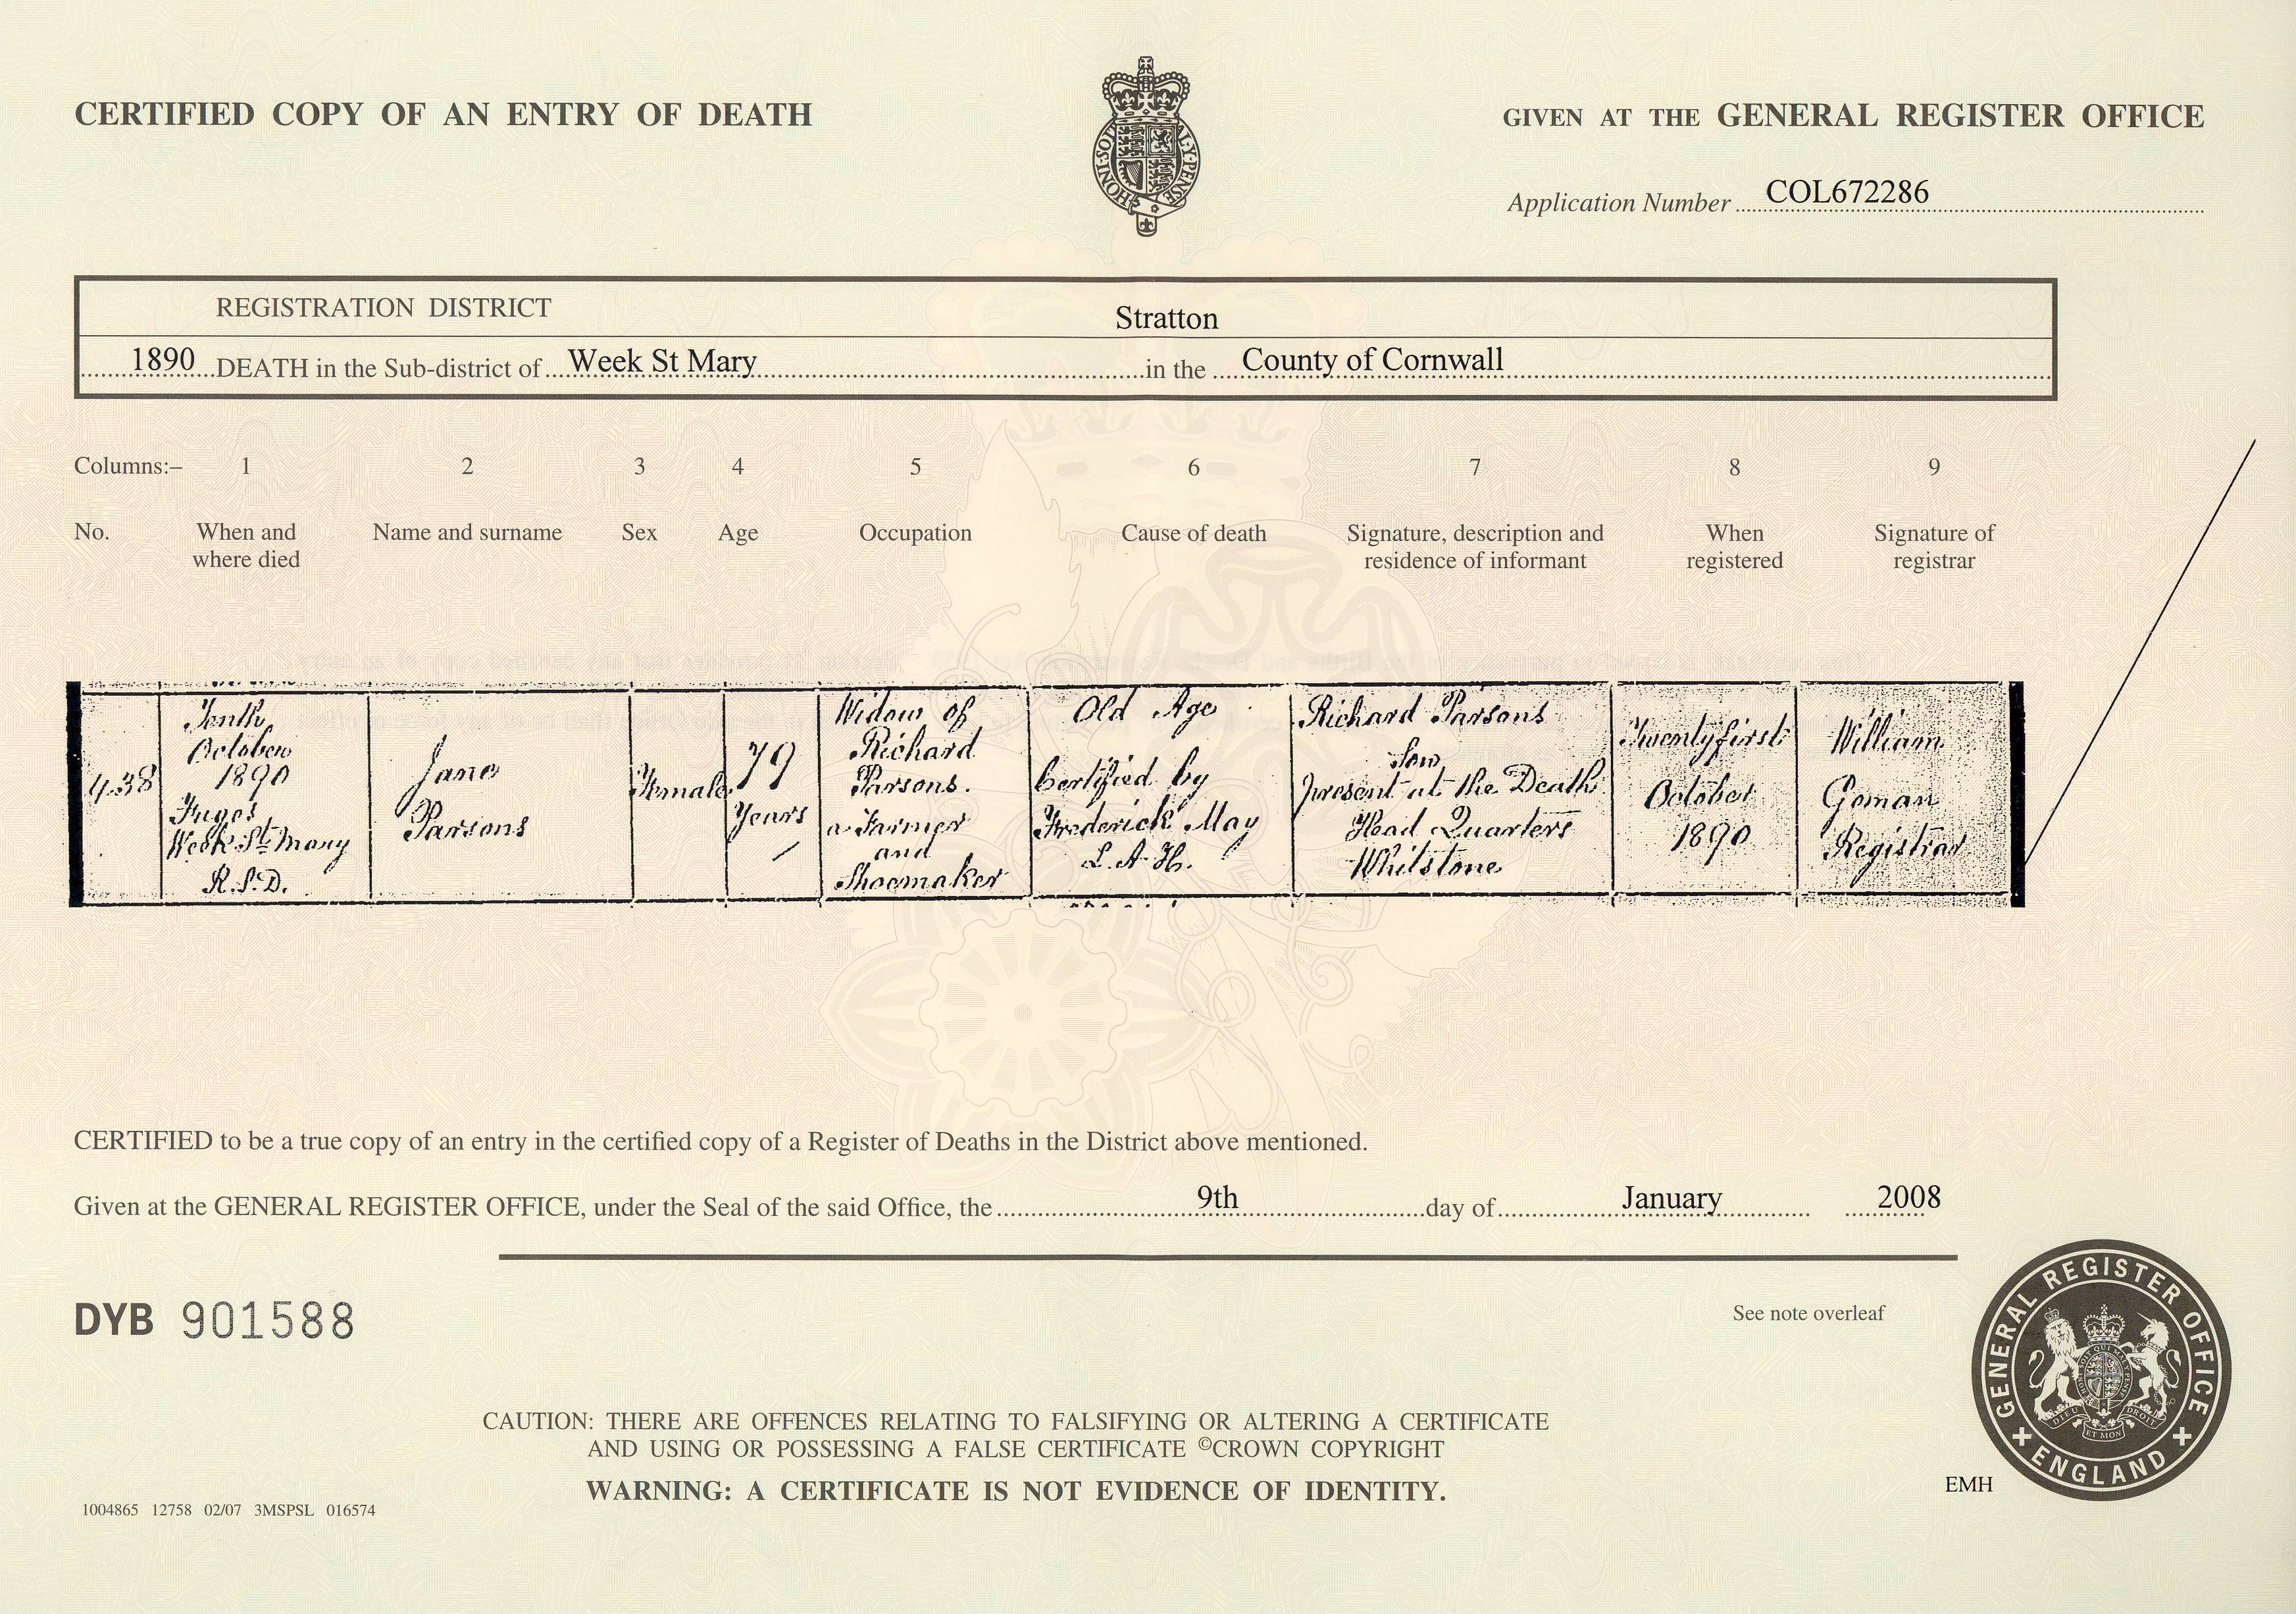 CERTIFIED COPY OF AN ENTRY OF DEATH
GIVEN AT THE GENERAL REGISTER OFFICE
HONI SOIT QUI MAL Y PENSE
Application Number COL672286
REGISTRATION DISTRICT
Stratton
1890 DEATH in the Sub-district of Week St Mary in the County of Cornwall
Columns:– 1 2 3 4 5 6 7 8 9
No. When and where died Name and surname Sex Age Occupation Cause of death Signature, description and residence of informant When registered Signature of registrar
438
Tenth
October
1890
Week St Mary
R.S.D.
Jane
Parsons
Female
79
Years
Widow of
Richard
Parsons.
a Farmer
and
Shoemaker
Old Age
Certified by
Frederick May
Richard Parsons
Son
present at the Death
Head Quarters
Whitstone
Twenty first
October
1890
William
Goman
Registrar
CERTIFIED to be a true copy of an entry in the certified copy of a Register of Deaths in the District above mentioned.
Given at the GENERAL REGISTER OFFICE, under the Seal of the said Office, the 9th day of January 2008
DYB 901588
See note overleaf
GENERAL REGISTER OFFICE
ENGLAND
DIEU ET MON DROIT
CAUTION: THERE ARE OFFENCES RELATING TO FALSIFYING OR ALTERING A CERTIFICATE
AND USING OR POSSESSING A FALSE CERTIFICATE ©CROWN COPYRIGHT
WARNING: A CERTIFICATE IS NOT EVIDENCE OF IDENTITY.
EMH
1004865 12758 02/07 3MSPSL 016574